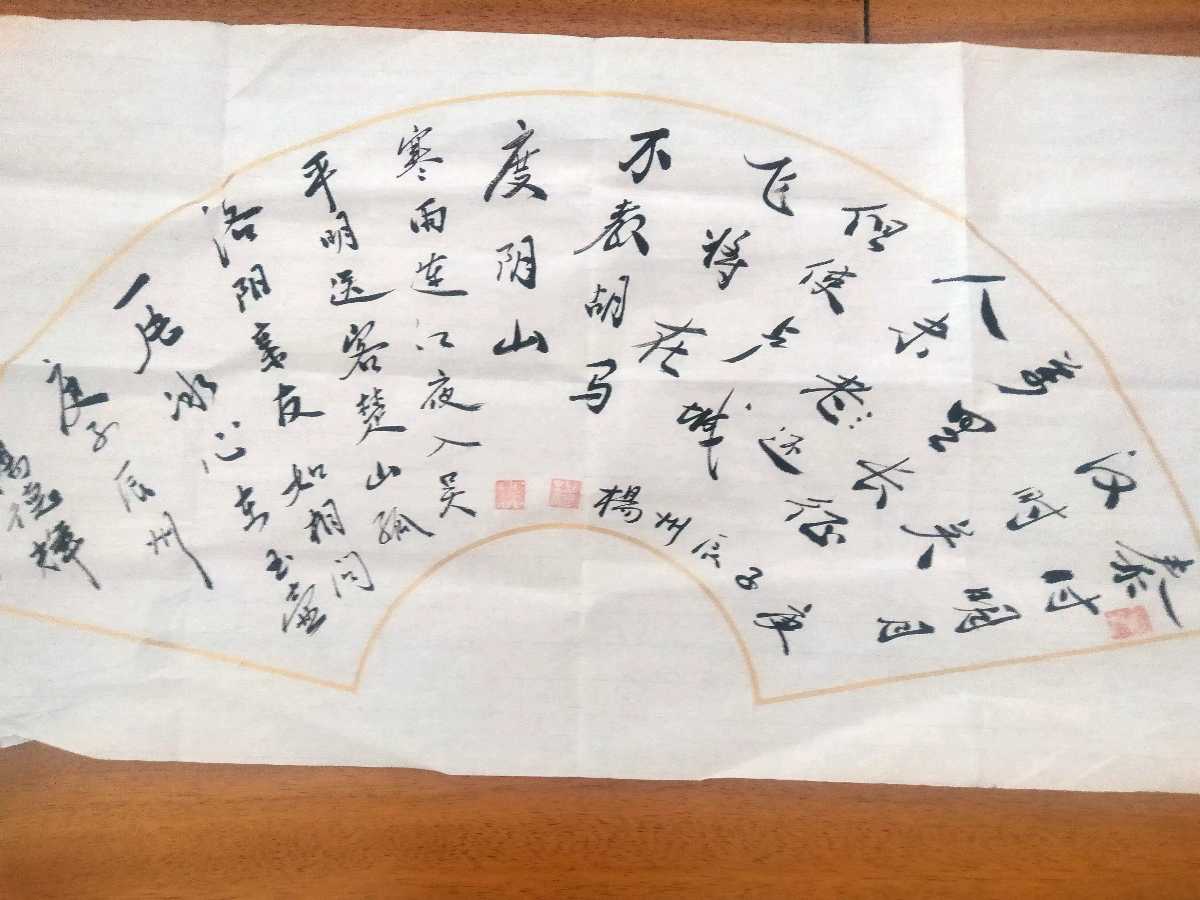 秦时明月
汉时关
万里长征
人未老还
但使卢城
飞将在
不教胡马
度阴山
庚子辰州楊
寒雨连江夜入吴
平明送客楚山孤
洛阳亲友如相问
一片冰心在玉壶
庚子辰州
德輝